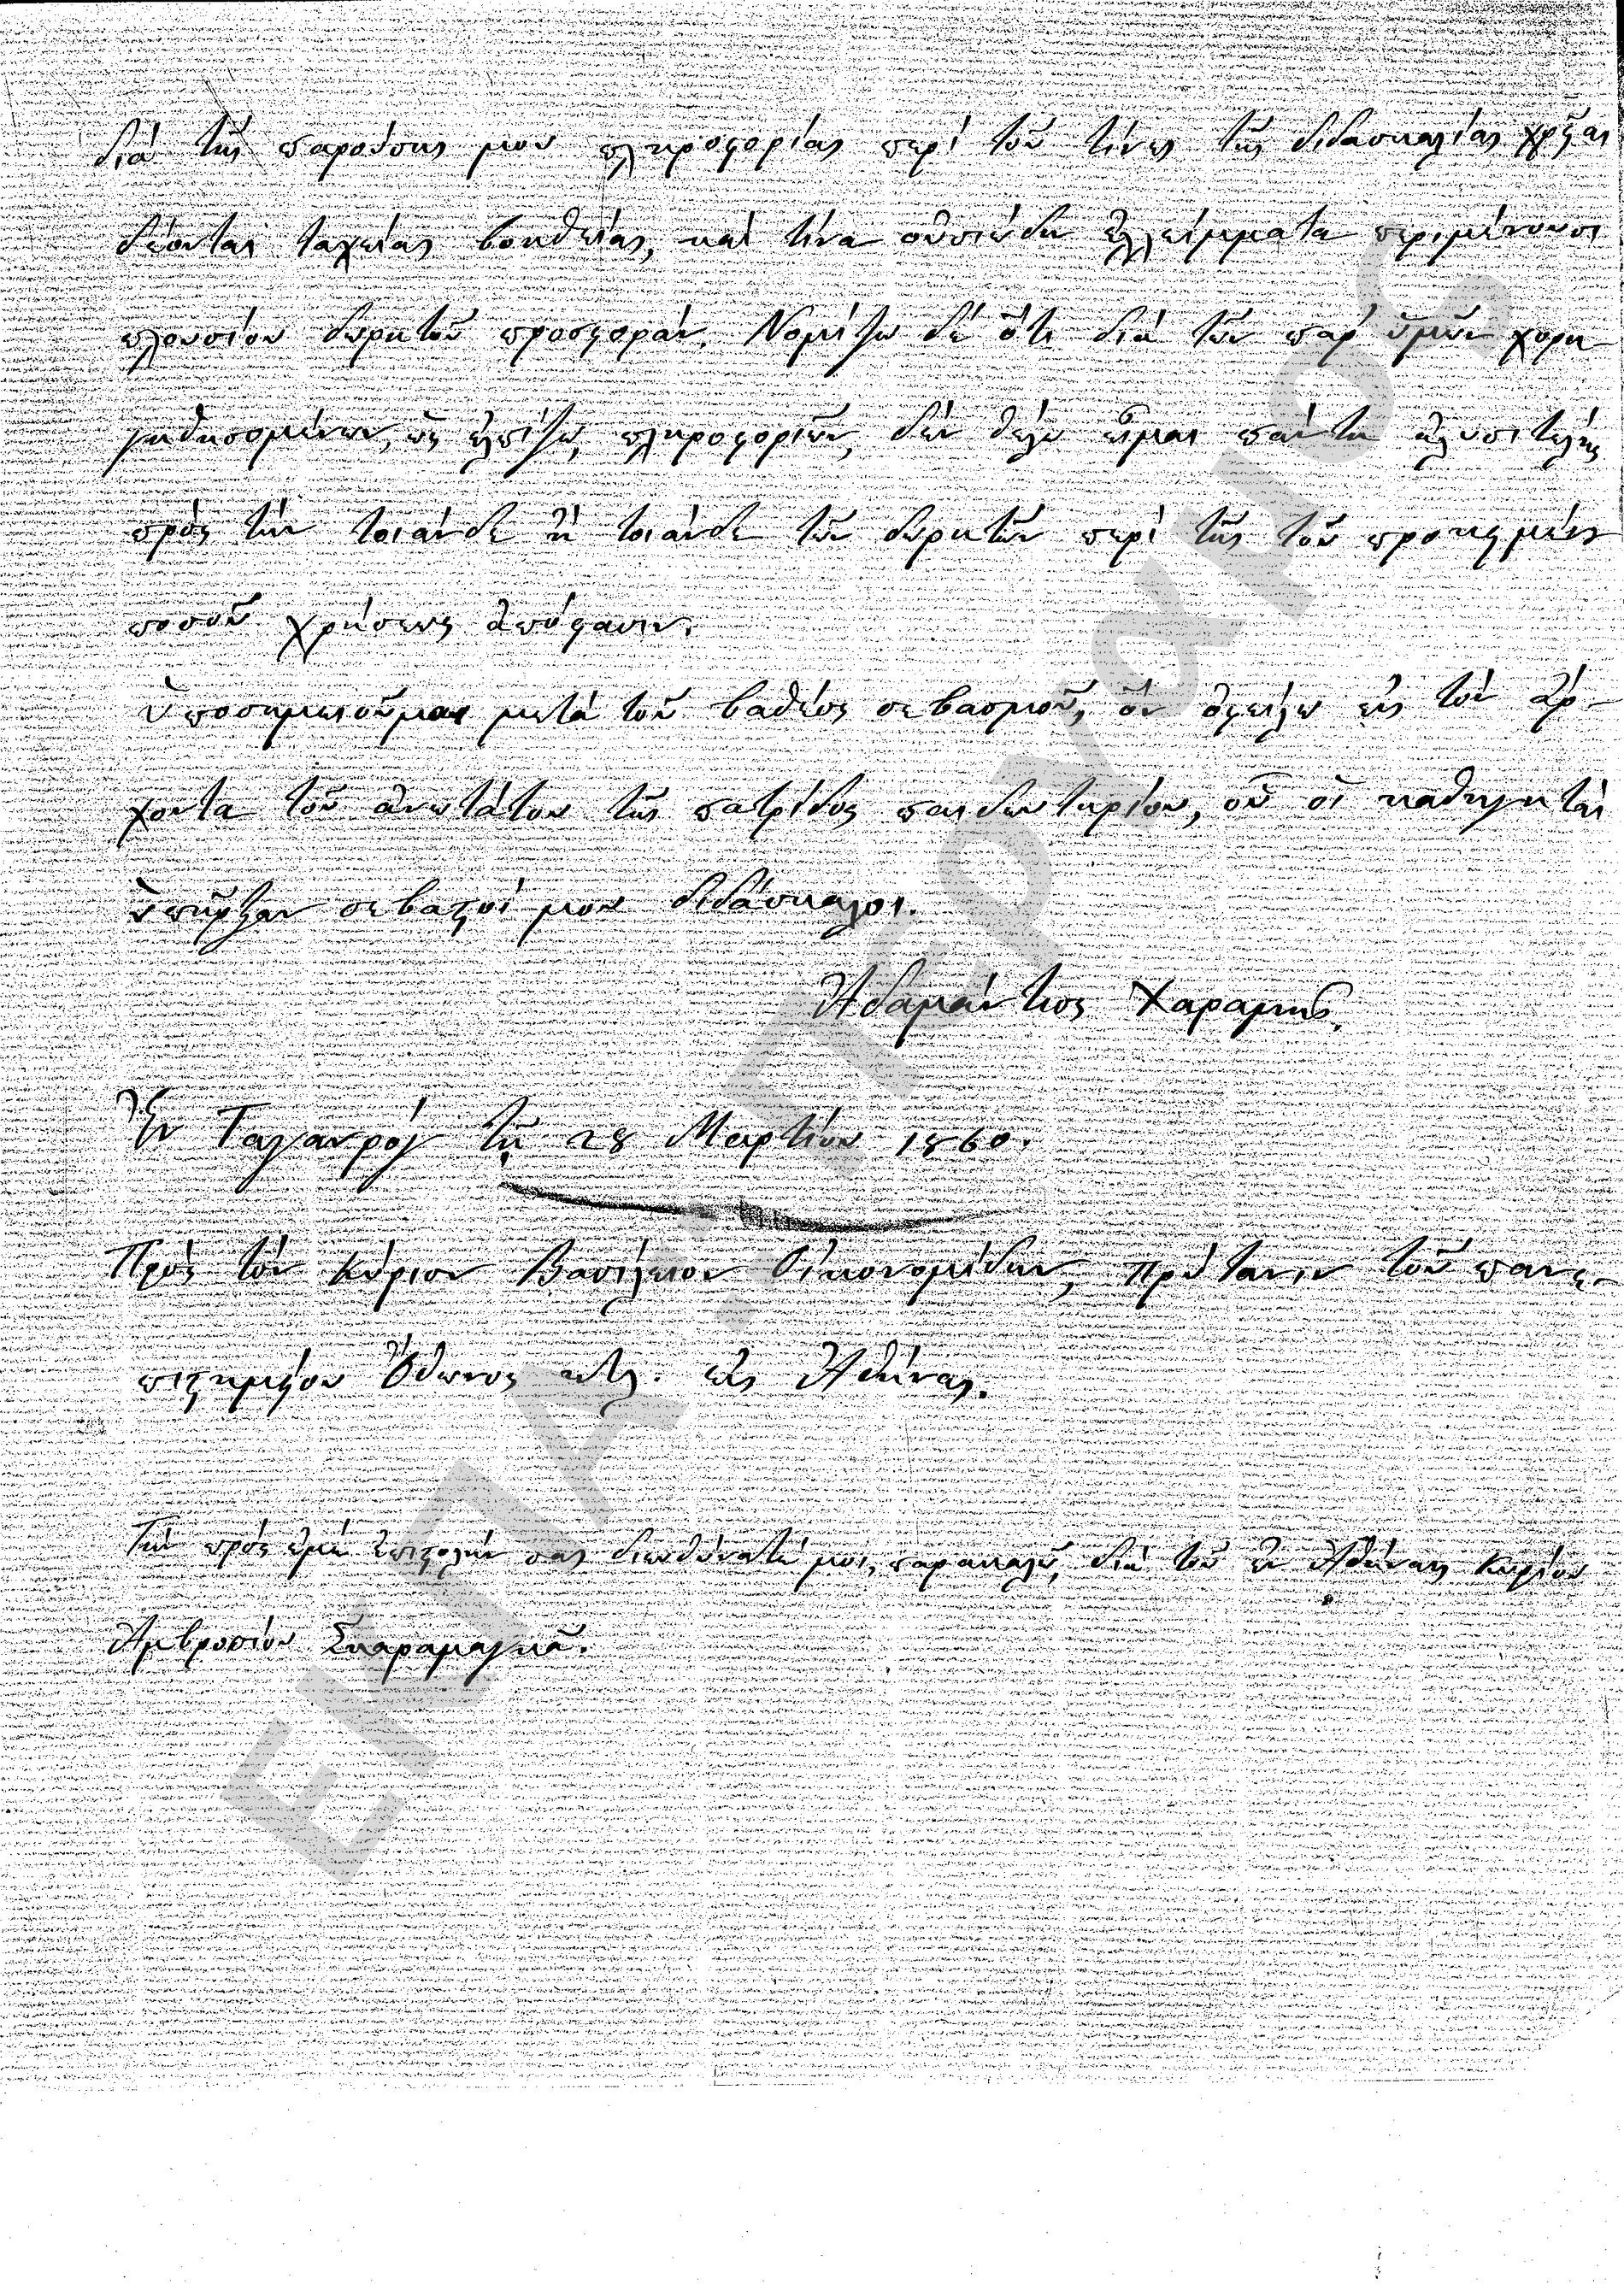 διὰ τῆς παρούσης μου πληροφορίας περὶ τοῦ τίνες τῆς διδασκαλίας χρεῖαι
δέονται ταχείας βοηθείας, καὶ τίνα οὐσιώδη ἐλλείμματα περιμένουσι
πλουσίου δωρητοῦ προσφοράν. Νομίζω δὲ ὅτι διὰ τῶν παρ' ὑμῶν χορη
γηθησομένων, ὡς ἐλπίζω, πληροφοριῶν, δὲν θέλω εἶμαι πάντη ἀλυσιτελὴς
πρὸς τὴν τοιάνδε ἢ τοιάνδε τῶν δωρητῶν περὶ τῆς τοῦ προκειμένου
ποσοῦ χρήσεως ἀπόφασιν.
Ὑποσημειοῦμαι μετὰ τοῦ βαθέος σεβασμοῦ, ὃν ὀφείλω εἰς τὸν ἄρ-
χοντα τοῦ ἀνωτάτου τῆς πατρίδος παιδευτηρίου, οὗ οἱ καθηγηταὶ
ὑπῆρξαν σεβαστοί μου διδάσκαλοι.
Ἀδαμάντιος Χαραμῆς.
Ἐν Ταγανρόγ τῇ 28 Μαρτίου 1860.
Πρὸς τὸν Κύριον Βασίλειον Οἰκονομίδην, Πρύτανιν τοῦ πανε-
πιστημείου Ὄθωνος κτλ. εἰς Ἀθήνας.
Τὴν πρὸς ἐμὲ ἐπιστολήν σας διευθύνατέ μοι, παρακαλῶ, διὰ τοῦ ἐν Ἀθήναις Κυρίου
Ἀμβροσίου Σκαραμαγκᾶ.
ΕΚΠΑ - Πέργαμος